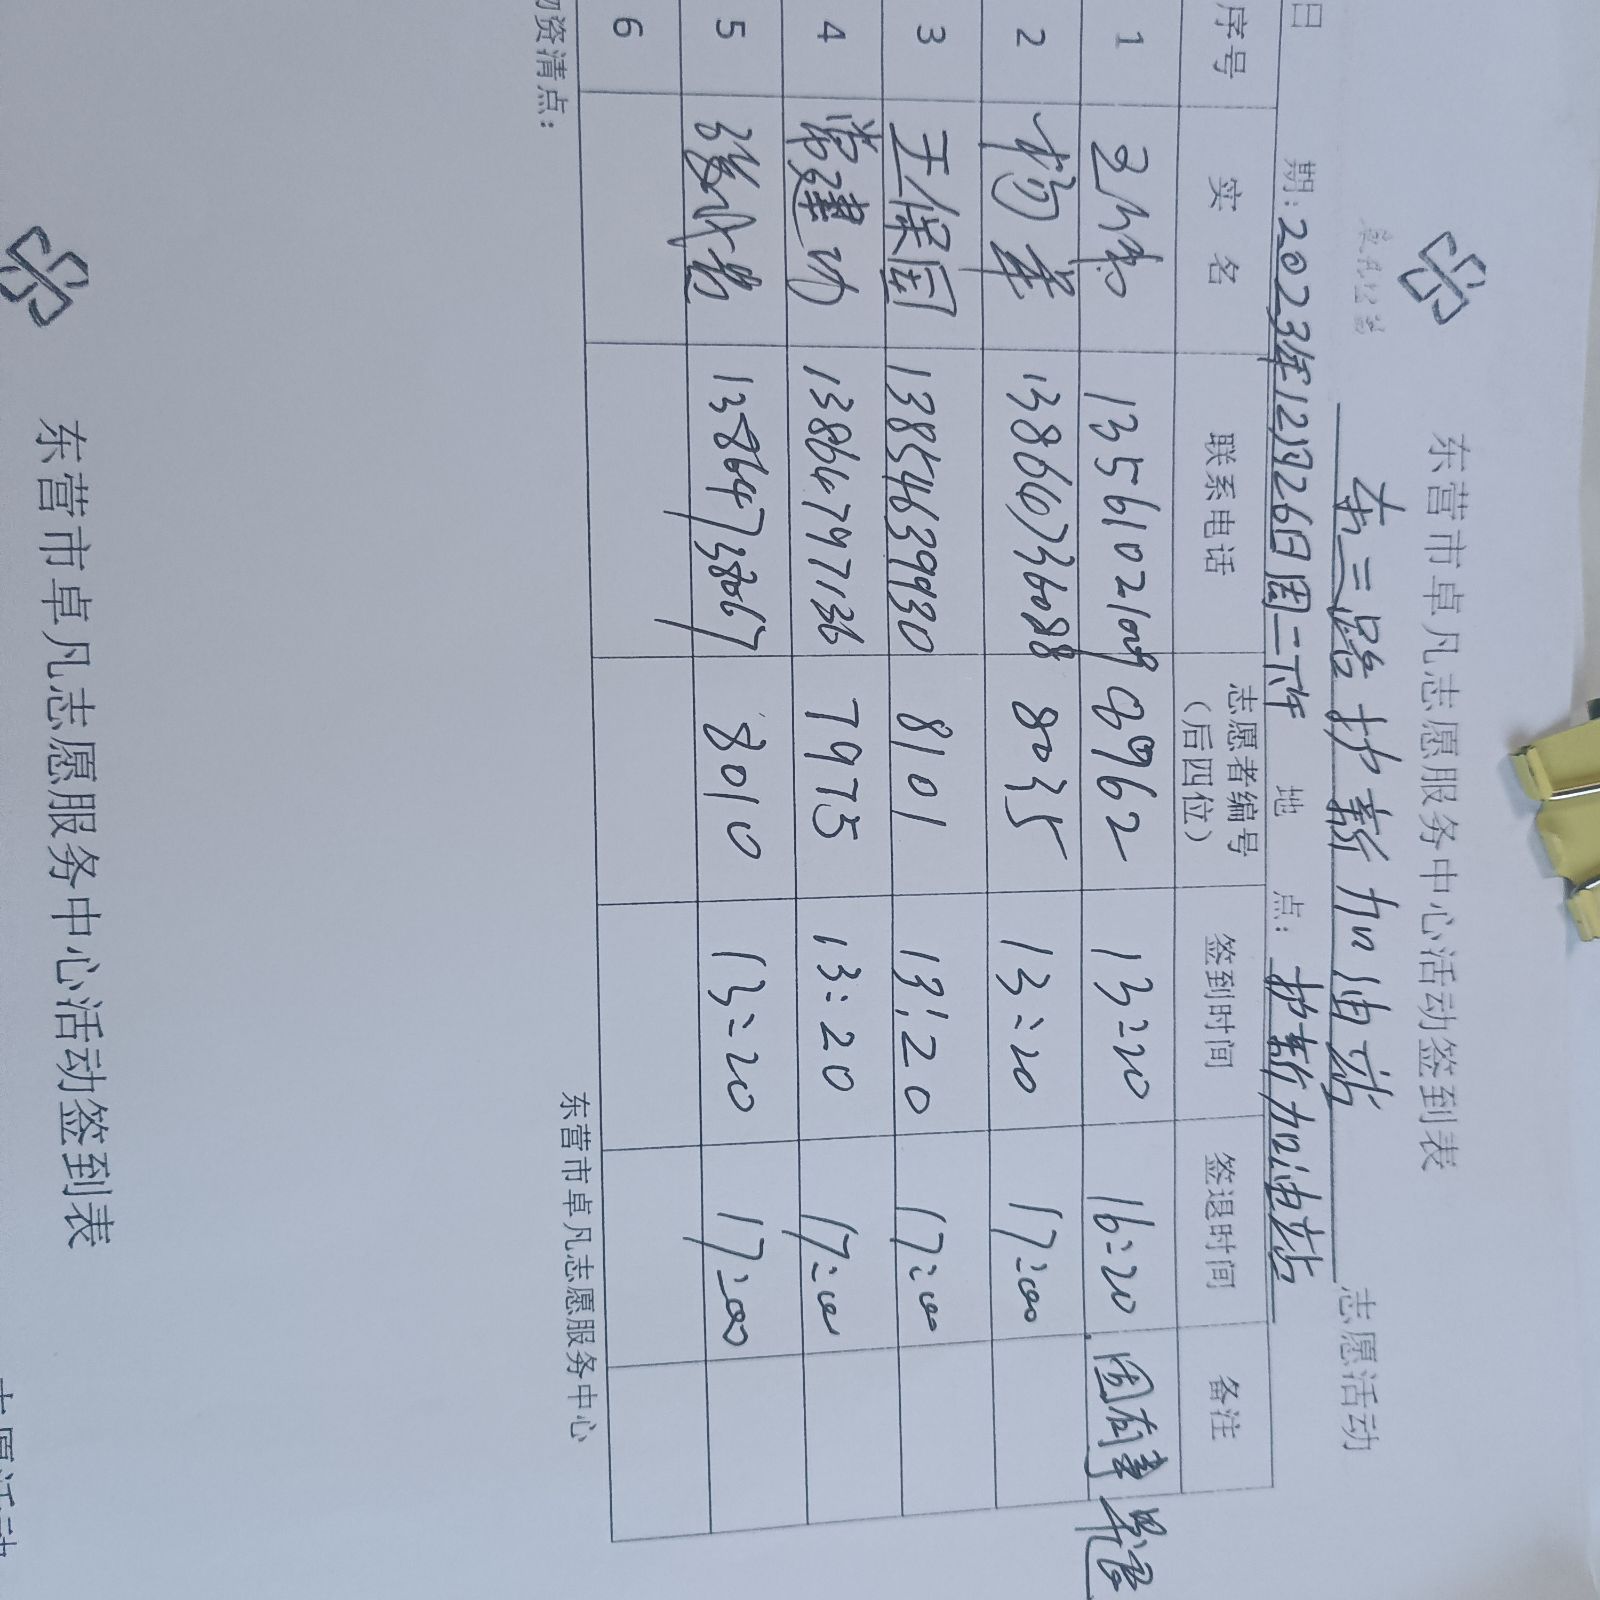 东营市卓凡志愿服务中心活动签到表
东三路护新加油站 志愿活动
日 期:2023年12月26日周二下午 地 点:护新加油站
序号 实 名 联系电话 志愿者编号（后四位） 签到时间 签退时间 备注
1 13561021009 9962 13:20 16:20 因有事早退
2 杨华 13864736088 8035 13:20 17:00
3 王保国 13854639930 8101 13:20 17:00
4 常建功 13864797136 7975 13:20 17:00
5 13864738067 8010 13:20 17:00
6
物资清点：
东营市卓凡志愿服务中心
东营市卓凡志愿服务中心活动签到表
志愿活动